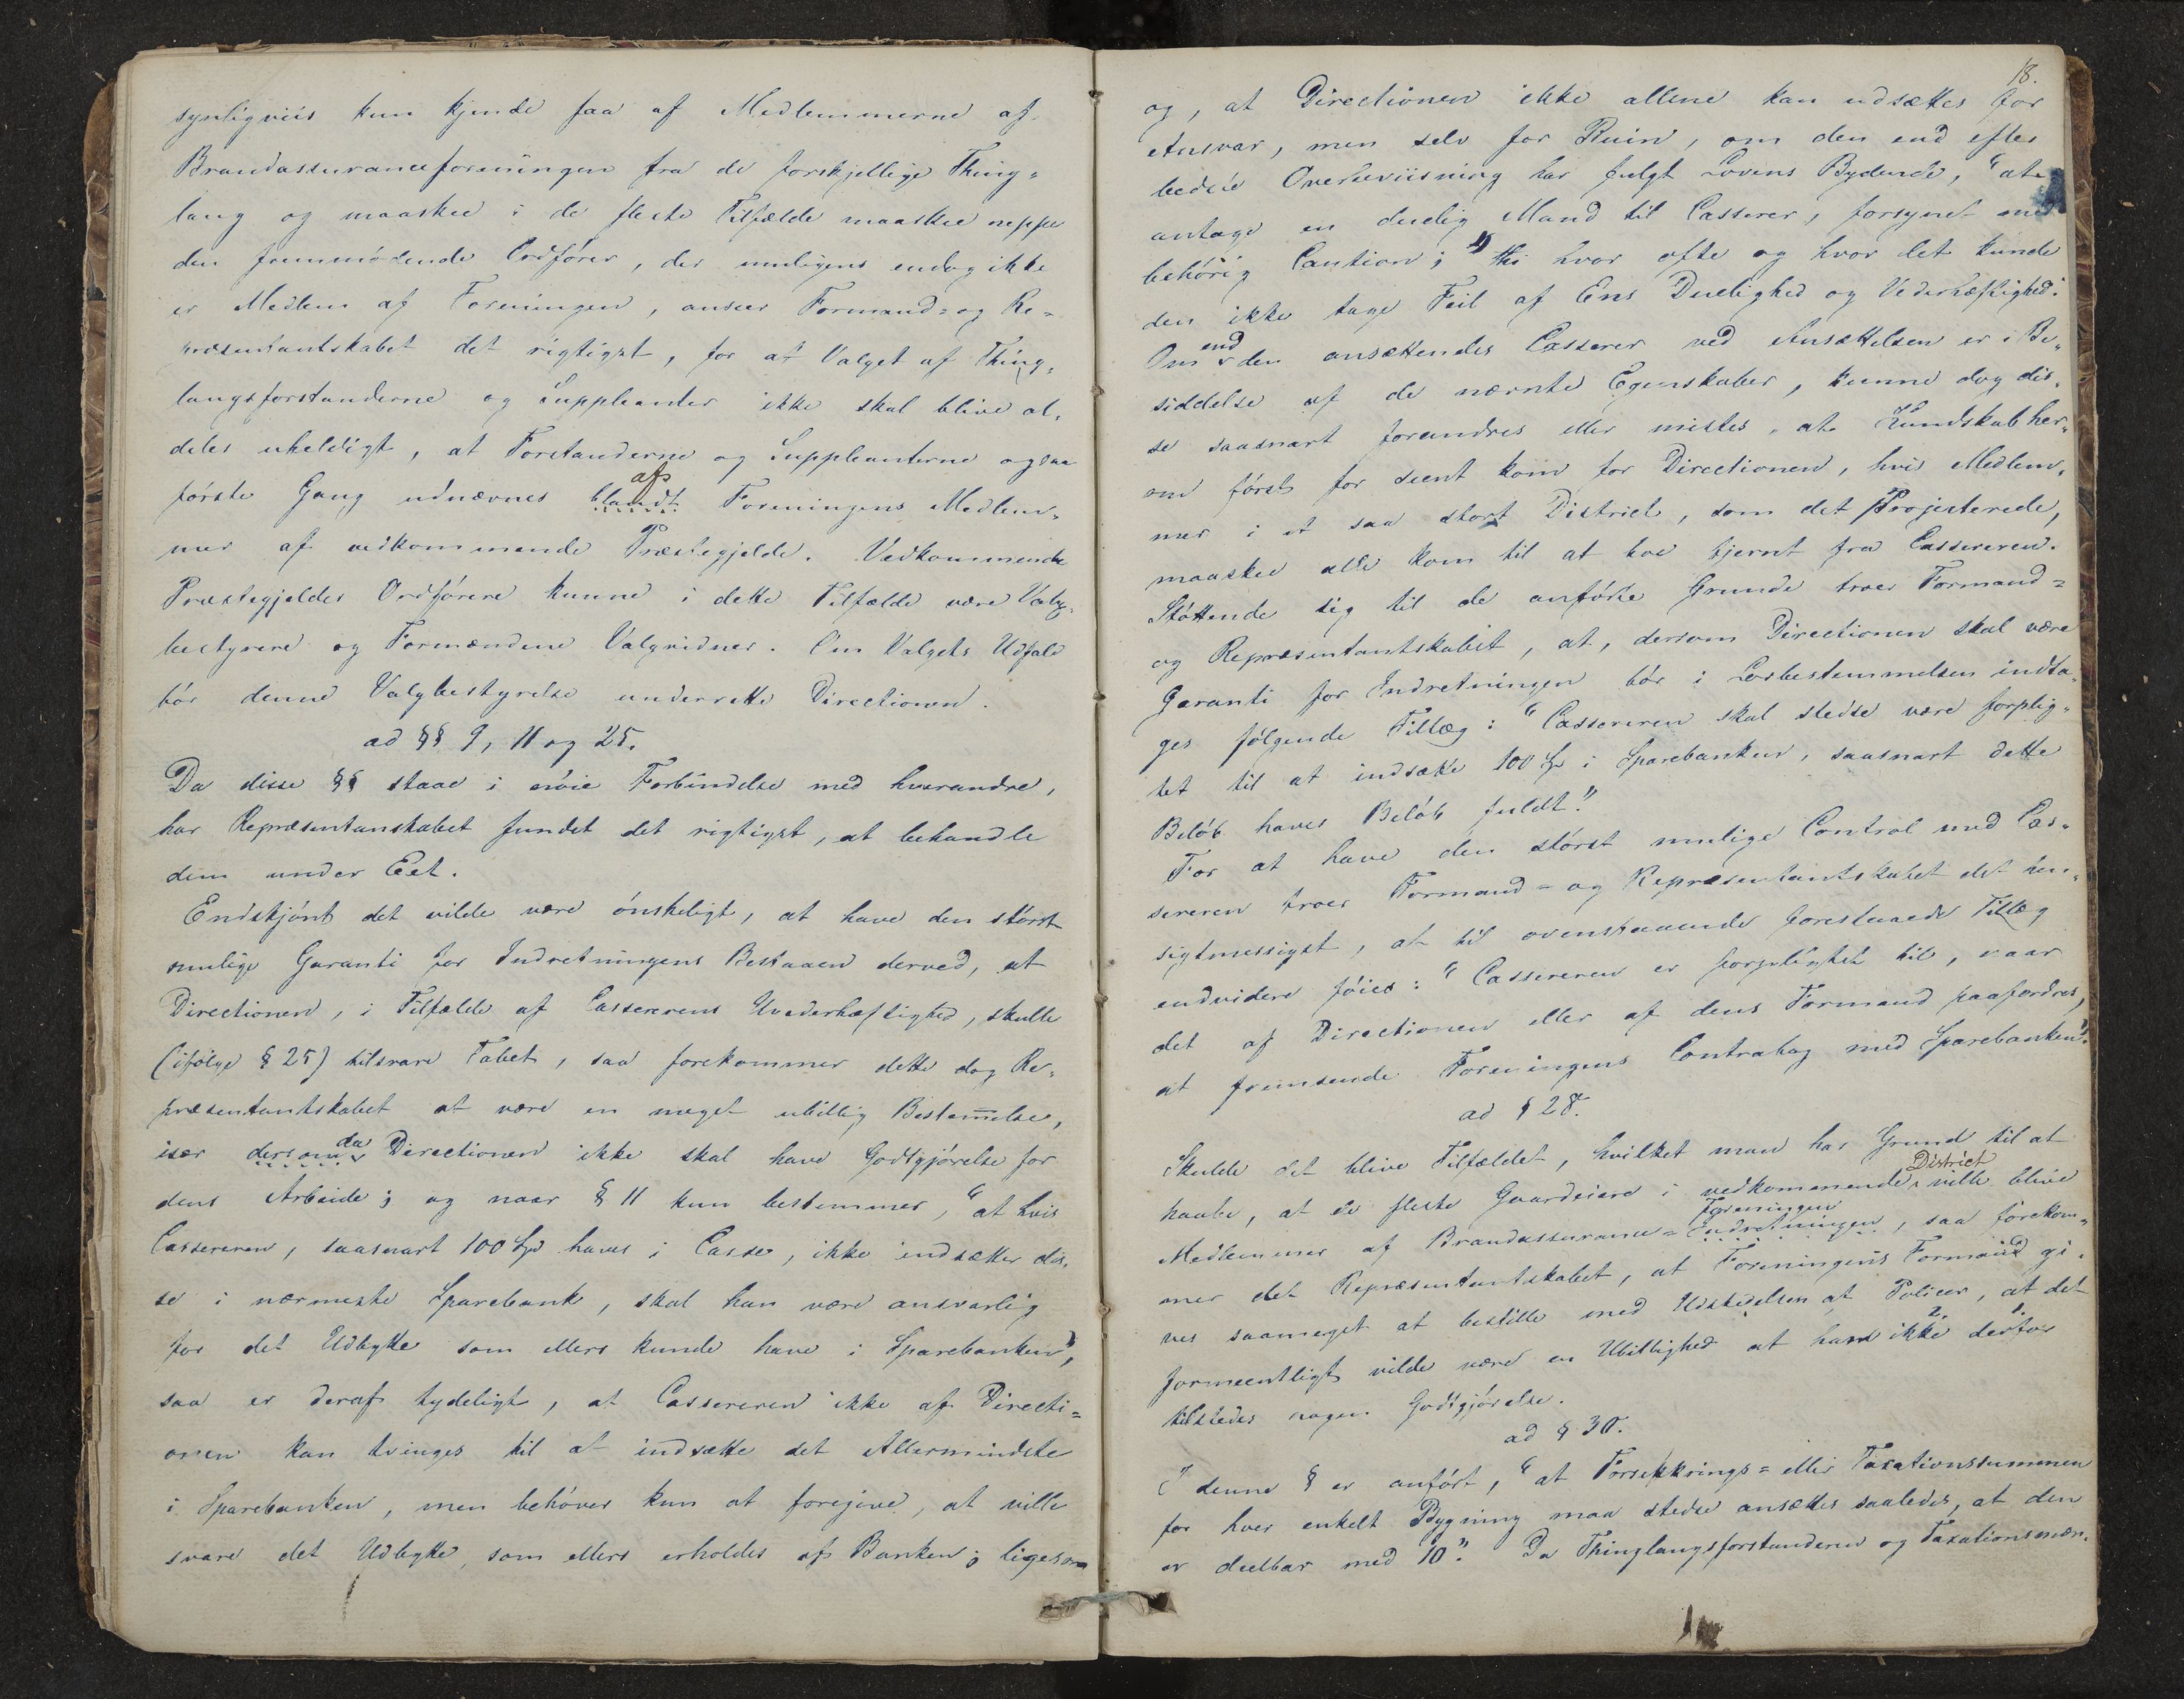 synligviis kun kjende faa af Medlemmerne af
Brandassuranceforeningen fra de forskjellige Thing=
laug og maaskee i de fleste Tilfælde maaskee neppe
den fremmødende Ordfører, der muligens endog ikke
er Medlem af Foreningen, anseer Formand= og Re=
præsentantskabet det rigtigst, for at Valget af Thing=
laugsforstanderne og Suppleanter ikke skal blive al=
deles uheldigt, at Forstanderne og Suppleanterne ogsaa
første Gang udnævnes blandt af Foreningens Medlem=
mer af vedkommende Præstegjelde. Vedkommende
Præstegjeldes Ordførere kunne i dette Tilfælde være Valg=
bestyrere og Formændene Valgvidner. Om Valgets Udfald
bør denne Valgbestyrelse underrette Directionen.
ad §§ 9, 11 og 25.
Da disse §§ staae i nøie Forbindelse med hverandre,
har Repræsentanskabet fundet det rigtigst, at behandle
dem under Eet.
Endskjønt det vilde være ønskeligt, at have den størst
mulige Garanti for Indretningens Bestaaen derved, at
Directionen, i Tilfælde af Cassererens Uvederhæftighed, skulle
(ifølge § 25) tilsvare Tabet, saa forekommer dette dog Re=
præsentantskabet at være en meget ubillig Bestem̅else,
især dersom da Directionen ikke skal have Godtgjørelse for
dens Arbeide; og naar § 11 kun bestemmer, "at hvis
Cassereren, saasnart 100 Spd haves i Casse, ikke indsætter dis=
se i nærmeste Sparebank, skal han være ansvarlig
for det Udbytte som ellers kunde have i Sparebanken",
saa er deraf tydeligt, at Cassereren ikke af Directi=
onen kan tvinges til at indsætte det Allermindste
i Sparebanken, men behøver kun at foregive, at ville
svare det Udbytte, som ellers erholdes af Banken; ligesom
18.
og, at Directionen ikke allene kan udsættes for
Ansvar, men selv for Ruin, om den end efter
bedste Overbeviisning har fulgt Lovens Bydende, "at
antage en duelig Mand til Casserer, forsynet med
behørig Caution;" thi hvor ofte og hvor let kunde
den ikke tage Feil af Ens Duelighed og Vederhæftighed.
Om end den ansættendes Casserer ved Ansættelsen er i Be=
siddelse af de nævnte Egenskaber, kunne dog dis=
se saasnart forandres eller mistes, at Kundskab her=
om først for seent kom for Directionen, hvis Medlem=
mer i et saa stort District, som det Projecterede,
maaskee alle kom til at boe fjernt fra Cassereren.
Støttende sig til de anførte Grunde troer Formand=
og Repræsentantskabet, at, dersom Directionen skal være
Garanti for Indretningen bør i Lovbestemmelsen indta=
ges følgende Tillæg: "Cassereren skal stedse være forplig=
tet til at indsætte 100 Spd i Sparebanken, saasnart dette
Beløb haves Beløb fuldt."
For at have den størst mulige Control med Cas=
sereren troer Formand= og Repræsentantskabet det hen=
sigtmessigst, at til ovenstaaende foreslaaede Tillæg
endvidere føies: "Cassereren er forpligtet til, naar
det af Directionen eller af dens Formand paafordres,
at fremsende Foreningens Contrabog med Sparebanken".
ad § 28.
Skulde det blive Tilfældet, hvilket man har Grund til at
haabe, at de fleste Gaardeiere i vedkommende District ville blive
Medlemmer af Brandassurance=Indretningen Foreningen, saa forekom=
mer det Repræsentantskabet, at Foreningens Formand gi=
ves saameget at bestille med Udstedelsen af Policer, at det
formeentligt vilde være en Ubillighed at han ikke 2. derfor 1.
tilstedes nogen Godtgjørelse.
ad § 30.
I denne § er anført, "at Forsikkrings= eller Taxationssummen
for hver enkelt Bygning maa stedse ansættes saaledes, at den
er deelbar med 10". Da Thinglaugsforstanderen og Taxationsmæn=